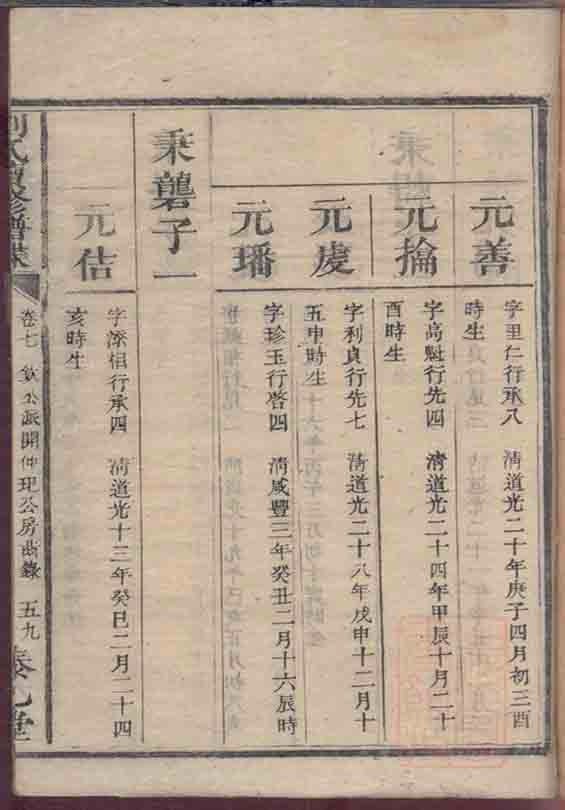 元善
字里仁行承八 清道光二十年庚子四月初三酉
時生
元掄
字高魁行先四 清道光二十四年甲辰十月二十
酉時生
元虔
字利貞行先七 清道光二十八年戊申十二月十
五申時生
元璠
字珍玉行啓四 清咸豐三年癸丑二月十六辰時
生
秉礱子一
元佶
字深侣行承四 清道光十三年癸巳二月二十四
亥時生
卷七 欽公派開仲玘公房齒錄 五九